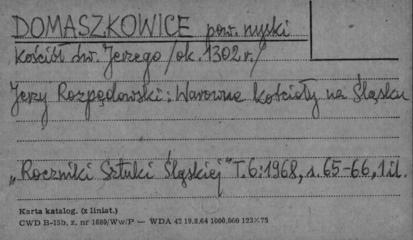 DOMASZKOWICE pow. nyski
Kościół św. Jerzego /ok. 1302 r./
Jerzy Rozpędowski: Warowne kościoły na Śląsku
„Roczniki Sztuki Śląskiej" T.6:1968, s. 65-66, 1 il.
Karta katalog. (z liniat.)
CWD B-15b, z. nr 1689/Ww/P — WDA 42 19.8.64 1000.000 123×75